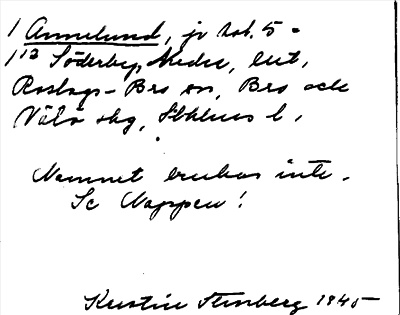 1 Annelund, jr tob. 5 =
1¹² Söderby, Nedre, ent,
Roslags-Bro sn, Bro och
Vätö skg, Sthlms l,
Namnet brukas inte.
Se Nappen!
Kerstin Stenberg 1945